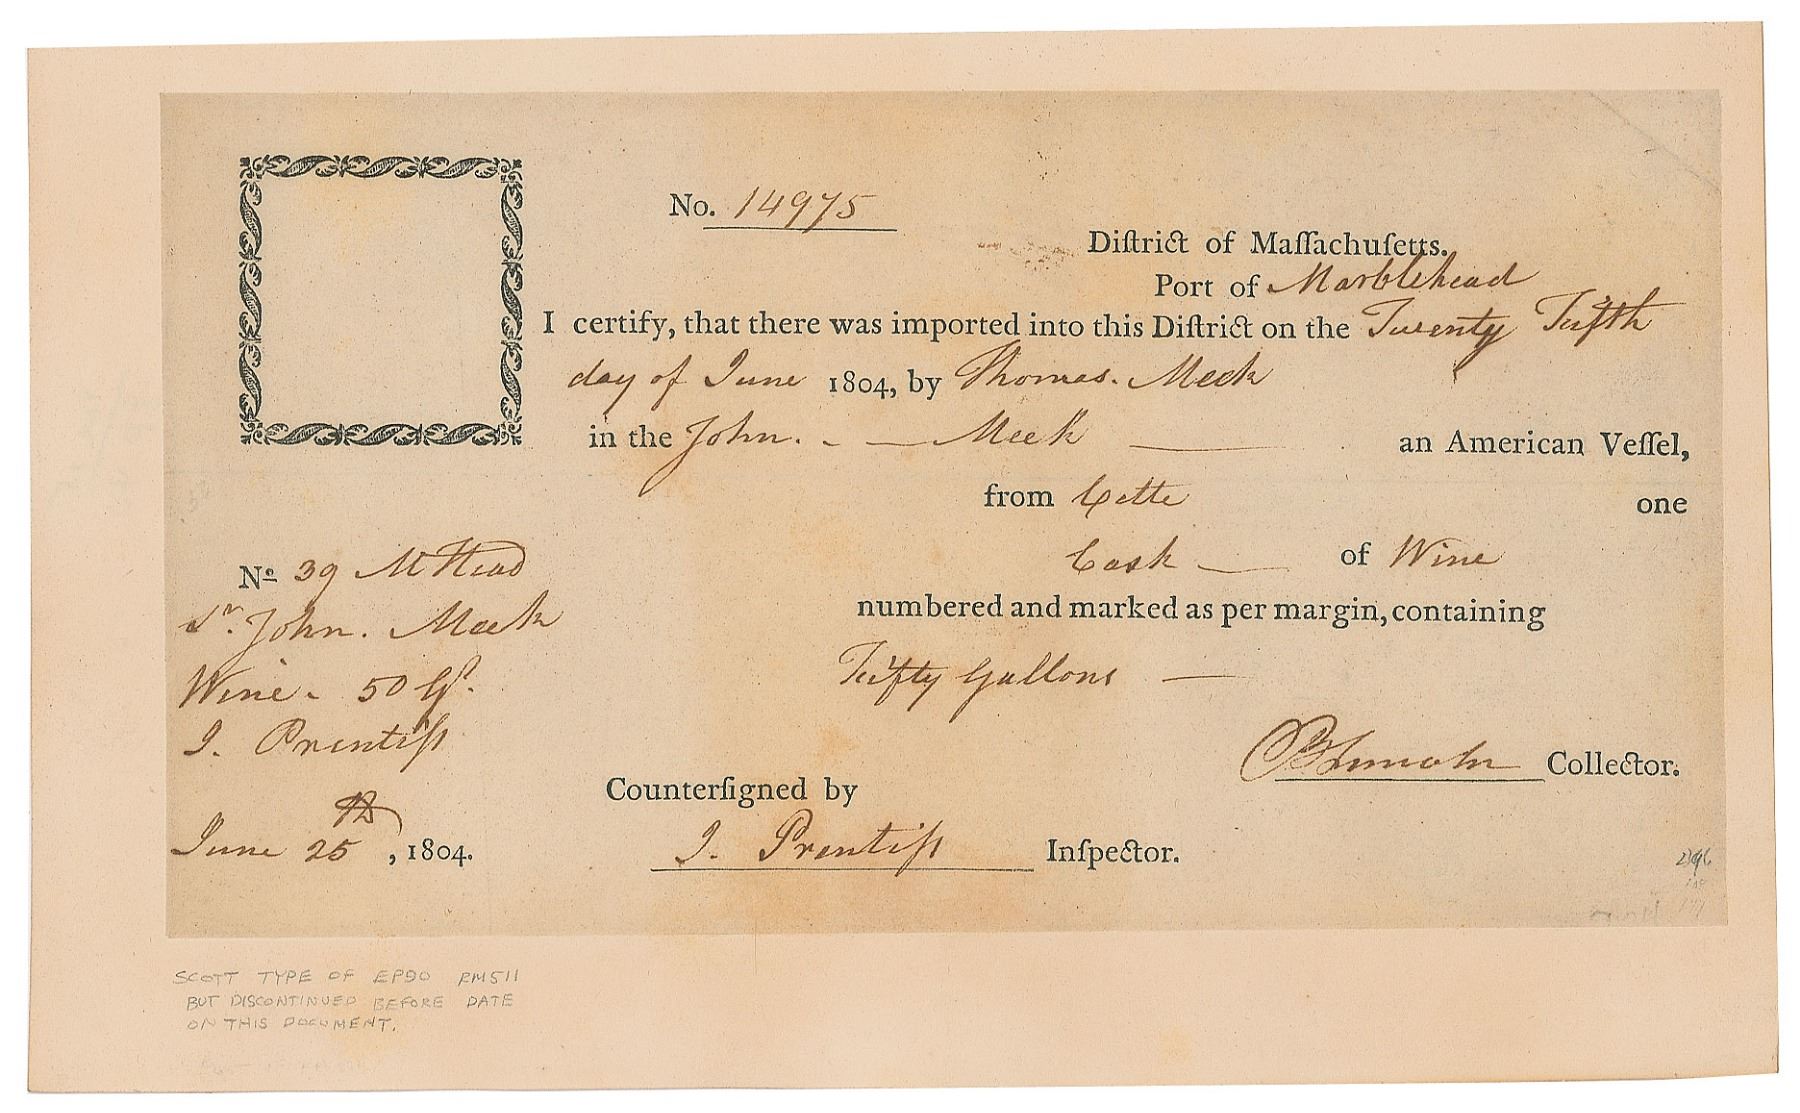 No. 14975
Diſtrict of Maſſachuſetts.
Port of Marblehead
I certify, that there was imported into this Diſtrict on the Twenty Fifth
day of June 1804, by Thomas. Meek
in the John. - — Meek — an American Veſſel,
from Cette one
Cask — of Wine
numbered and marked as per margin, containing
Fifty Gallons —
BLincoln Collector.
Counterſigned by
I. Prentiſs Inſpector.
No. 39 MHead
Sr. John. Meek
Wine - 50 Gs.
I. Prentiſs
June 25th, 1804.
SCOTT TYPE OF EP90 RM511
BUT DISCONTINUED BEFORE DATE
ON THIS DOCUMENT.